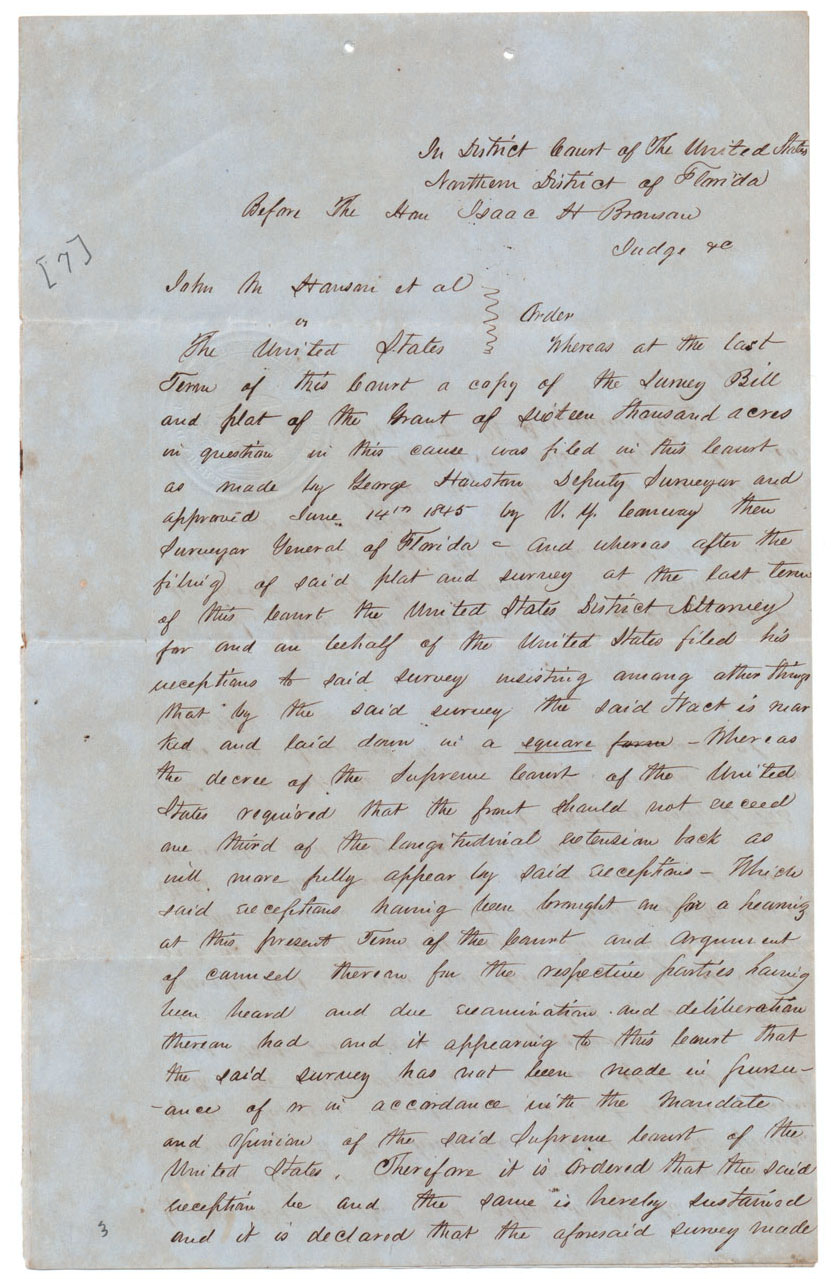 In District Court of The United States
Northern District of Florida
Before The Hon Isaac H Bronson
Judge &c
[7]
John M Hanson et al
vs
Order
The United States Whereas at the last
Term of this Court a copy of the Survey Bill
and plat of the Grant of sixteen thousand acres
in question in this cause was filed in this Court
as made by George Houston Deputy Surveyor and
approved June 14th 1845 by V. Y. Conway then
Surveyor General of Florida – And whereas after the
filing of said plat and survey at the last term
of this Court the United States District Attorney
for and on behalf of the United States filed his
exceptions to said survey insisting among other things
that by the said survey the said tract is mar
ked and laid down in a square form – Whereas
the decree of the Supreme Court of the United
States required that the front should not exceed
one third of the longitudinal extension back as
will more fully appear by said exceptions – Which
said exceptions having been brought on for a hearing
at this present Term of the Court and argument
of counsel thereon for the respective parties having
been heard and due examination and deliberation
thereon had and it appearing to this Court that
the said survey has not been made in pursu-
-ance of or in accordance with the mandate
and opinion of the said Supreme Court of the
United States. Therefore it is Ordered that the said
exception be and the same is hereby sustained
and it is declared that the aforesaid survey made
3